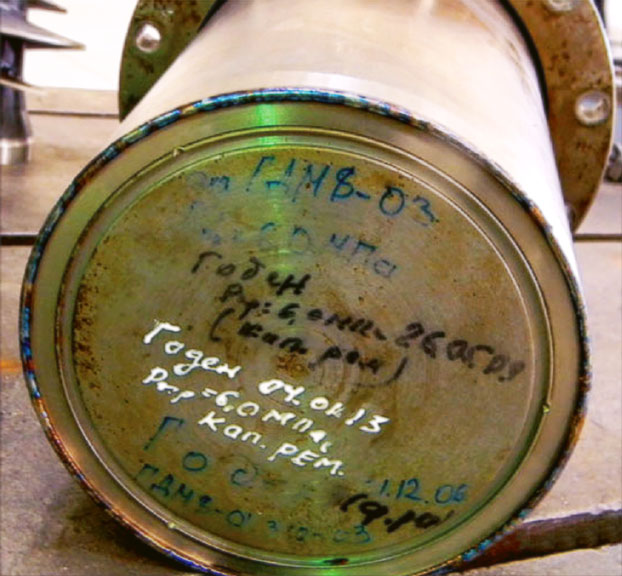 ГДМ8-03
6,0 мпа
Годен
Рпр=6,0мпа 26.05.09
(кап. рем)
Годен 04.01.13
Рпр=6,0мпа
кап. рем.
1.12.06
ГДМ8-01